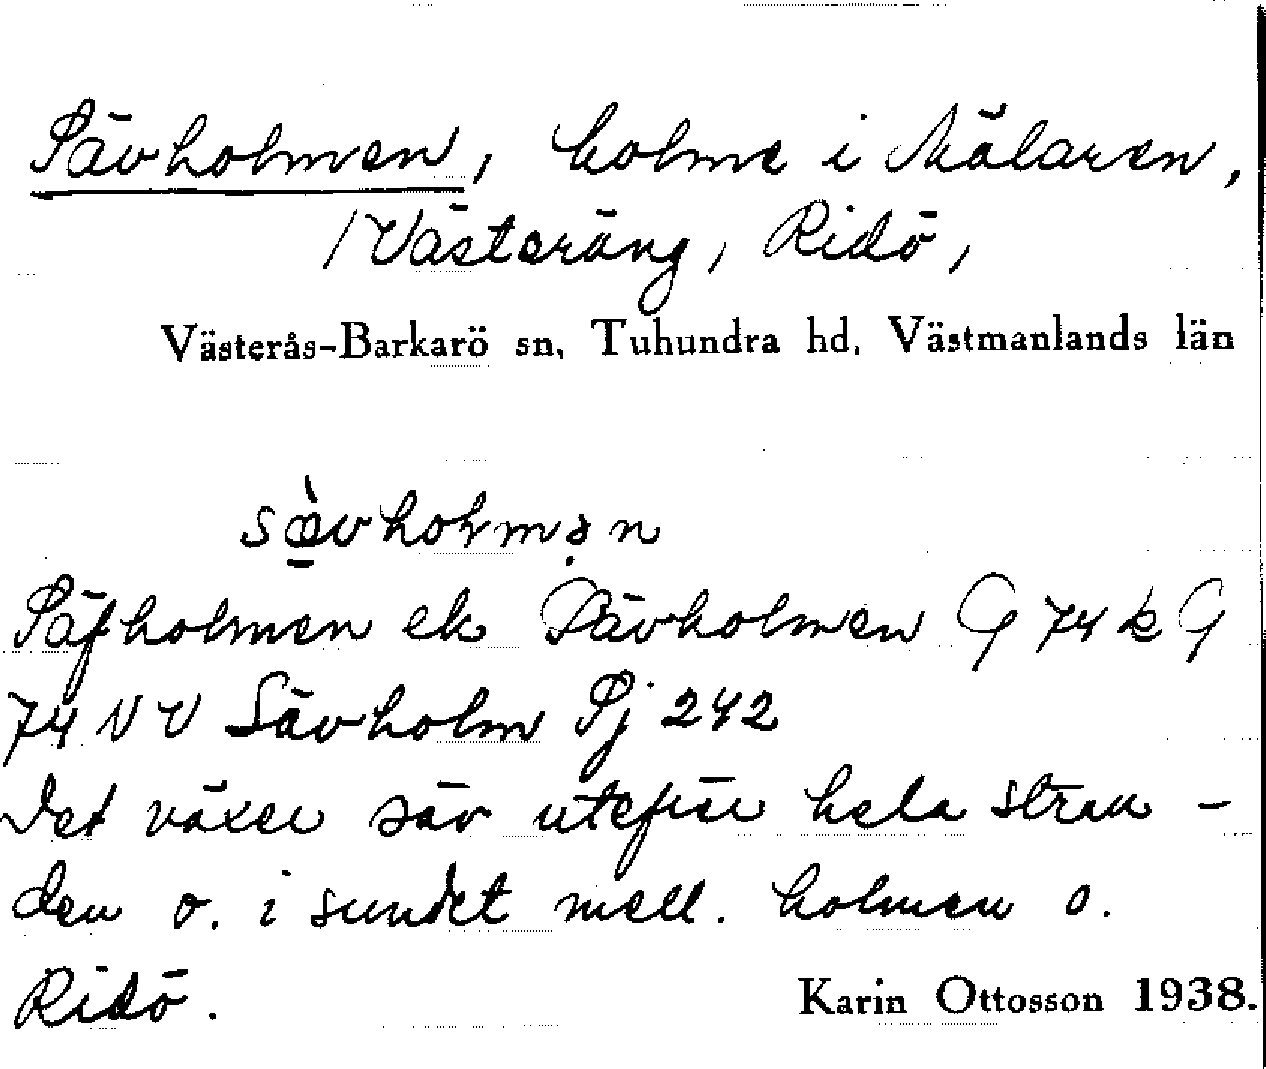 Sävholmen, holme i Mälaren,
/Västeräng, Ridö,
Västerås-Barkarö sn, Tuhundra hd, Västmanlands län
sæ̀vholmən
Säfholmen ek Sävholmen G 74 k G
74 NV Sävholm Sj 242
Det växer säv utefter hela stran-
den o. i sundet mell. holmen o.
Ridö.
Karin Ottosson 1938.